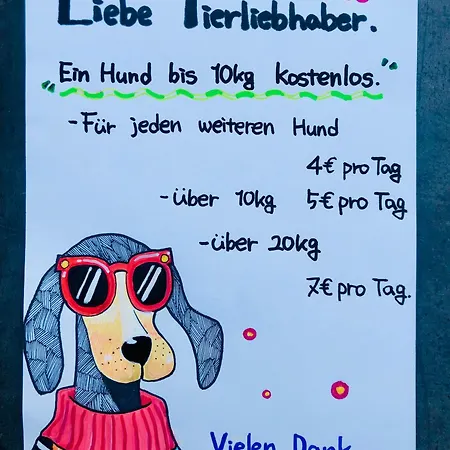 Liebe Tierliebhaber.
"Ein Hund bis 10kg kostenlos."
-Für jeden weiteren Hund
4€ pro Tag
-über 10kg 5€ pro Tag
-über 20kg
7€ pro Tag.
Vielen Dank